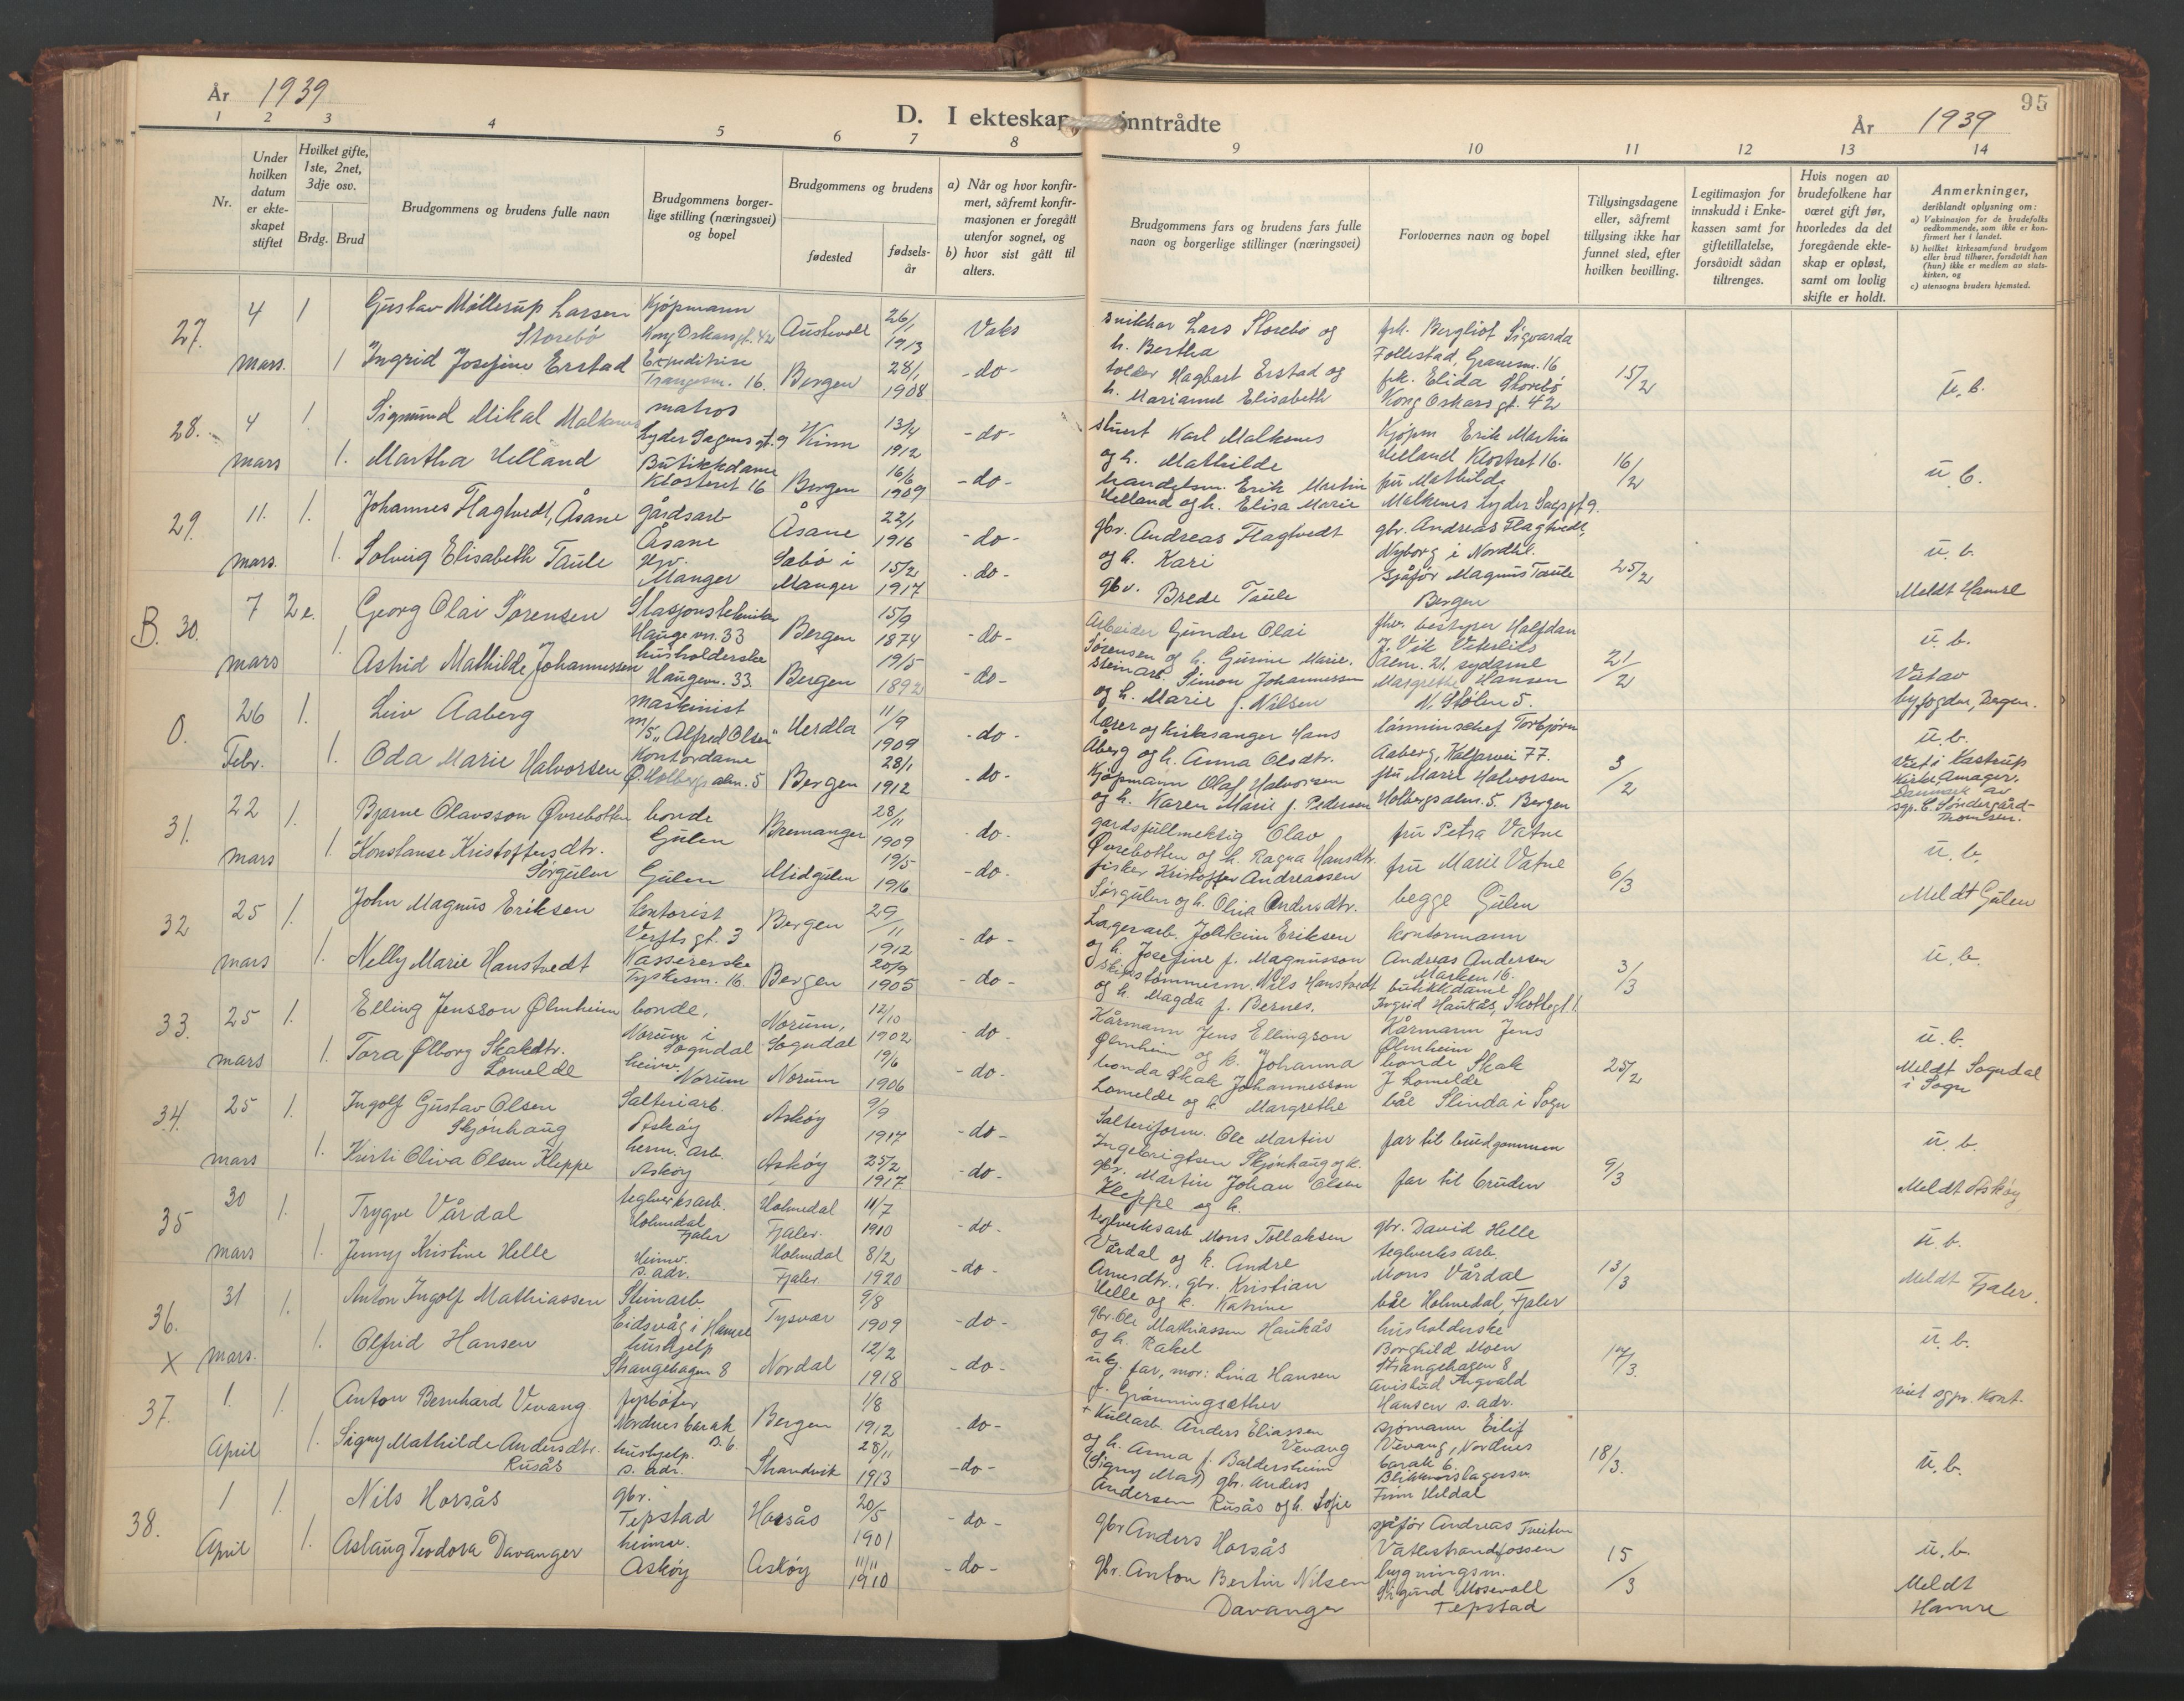 År 1939
D. I ekteskap inntrådte
95
År 1939
1 2 3 4 5 6 7 8 9 10 11 12 13 14
Nr.
Under hvilken datum er ekteskapet stiftet
Hvilket gifte, 1ste, 2net, 3dje osv.
Brdg. Brud
Brudgommens og brudens fulle navn
Brudgommens borgerlige stilling (næringsvei) og bopel
Brudgommens og brudens
fødested
fødselsår
a) Når og hvor konfirmert, såfremt konfirmasjonen er foregått utenfor sognet, og
b) hvor sist gått til alters.
Brudgommens fars og brudens fars fulle navn og borgerlige stillinger (næringsvei)
Forlovernes navn og bopel
Tillysingsdagene eller, såfremt tillysing ikke har funnet sted, efter hvilken bevilling.
Legitimasjon for innskudd i Enkekassen samt for giftetillatelse, forsåvidt sådan tiltrenges.
Hvis nogen av brudefolkene har været gift før, hvorledes da det foregående ekteskap er opløst, samt om lovlig skifte er holdt.
Anmerkninger,
deriblandt oplysning om:
a) Vaksinasjon for de brudefolks vedkommende, som ikke er konfirmert her i landet.
b) hvilket kirkesamfund brudgom eller brud tilhører, forsåvidt han (hun) ikke er medlem av statskirken, og
c) utensogns bruders hjemsted.
27. 4 mars. 1 Gustav Møllerup Larsen Storebø Kjøpmann Kong Oskarsgt. 42 Austevoll 26/1 1913 Vaks
snikker Lars Storebø og h. Bertha frk. Bergliot Sigvarda Follestad, Granesm. 16
1 Ingrid Josefine Erstad Expeditrise 16. Bergen 28/1 1908 -do-
toller Hagbart Erstad og h. Marianne Elisabeth frk. Elida Storebø Kong Oskars gt. 42 15/2 u. b.
28. 4 mars 1. Sigmund Mikal Malkenes matros Lyder Sagens gt. 9 Kinn 13/4 1912 -do-
stuert Karl Malkenes og h. Mathilde Kjøpm Erik Martin Helland Klostret 16. 16/2 u. b.
1. Martha Helland Butikkdame Klosteret 16 Bergen 16/6 1909 -do-
handelsm. Erik Martin Helland og h. Elisa Marie fru Mathilde Malkenes Lyder Sagsgt. 9.
29. 11. mars. 1. Johannes Flagtvedt, Åsane gårdsarb Åsane Åsane 22/1 1916 -do-
gbr. Andreas Flagtvedt og h. Kari gbr. Andreas Flagtvedt, Nyborg i Nordhl. 25/2 u. b.
1. Solveig Elisabeth Taule Manger Sabø i Manger 15/2 1917 -do-
gbr. Brede Taule sjåfør Magnus Taule Bergen Meldt Hamre
B. 30. 7 mars 2e. Georg Olai Sørensen Stasjonstekniker Hauge vn. 33 Bergen 15/9 1874 -do-
Arbeider Gunder Olai Sørensen og h. Gurine Marie. fhv. bestyrer Halfdan J. Vik Veterlids alm. 21. 21/2 u. b.
1. Astrid Mathilde Johannessen husholderske Haugevn. 33. Bergen 19/5 1892 -do-
steinarb. Simon Johannessen og h. Marie f. Nilsen sydame Margrethe Hansen N. Stølen 5. Viet av byfogden, Bergen.
O. 26 Febr. 1. Leiv Aaberg maskinist m/s „Alfred Olsen" Herdla 11/9 1909 -do-
lærer og kirkesanger Hans Åberg og h. Anna Olsdtr. Torbjørn Aaberg, Kalfarvei 77. 3/2 u. b.
1. Oda Marie Halvorsen Kontordame Ø. Holbergs alm. 5 Bergen 28/1 1912 -do-
Kjøpmann Olaf Halvorsen og h. Karen Marie f. Pedersen fru Marie Halvorsen Holbergsalm. 5. Bergen Viet i Kastrup Kirke Amager, Danmark av sgp. C. Søndergård-Thomsen.
31. 22 mars 1. Bjarne Olavsson Øvrebotten bonde Gulen Bremanger 28/11 1909 -do-
gardsfullmektig Olav Øvrebotten og h. Ragna Hansdtr. fru Petra Vatne 6/3 u. b.
1. Konstanse Kristoffersdtr. Sørgulen Gulen Midgulen 19/5 1916 -do-
fisker Kristoffer Andreassen Sørgulen og h. Oliva Andersdtr. fru Marie Vatne begge Gulen Meldt Gulen
32 25 mars 1. John Magnus Eriksen kontorist Verftsgt. 3 Bergen 29/11 1912 -do-
Lagerarb. Joakim Eriksen og h. Josefine f. Magnusson kontormann Andreas Andersen Marken 16. 3/3 u. b.
1. Nelly Marie Hanstvedt Kassererske Tyskesm. 16. Bergen 20/9 1905 -do-
skipstømmerm. Nils Hanstvedt og h. Magda f. Bernes. butikkdame Ingrid Haukås, Skottegt. 1.
33. 25 mars 1. Elling Jensson Ølmheim bonde, Norum i Sogndal Norum, Sogndal 12/10 1902 -do-
Kårmann Jens Ellingson Ølmheim og h. Johanna Kårmann Jens Ølmheim 25/2 u. b.
1. Tora Ølborg Skakdtr. Lomelde heimv. Norum Norum 19/6 1906 -do-
bonda Skak Johannesson Lomelde og h. Margrethe bonde Skak J Lomelde båe Slinda i Sogn Meldt Sogndal i Sogn
34. 25 mars 1. Ingolf Gustav Olsen Skjønhaug Salteriarb. Askøy Askøy 9/9 1917 -do-
Salteriform. Ole Martin Ingebrigtsen Skjønhaug og h. far til brudgommen 9/3 u. b.
1. Kirsti Oliva Olsen Kleppe herm. arb. Askøy Askøy 25/2 1917 -do-
gbr. Martin Johan Olsen Kleppe og h. far til bruden Meldt Askøy
35 30 mars 1. Trygve Vårdal teglverksarb. Holmedal Fjaler Holmedal Fjaler. 11/7 1910 -do-
teglverksarb Mons Tollaksen Vårdal og h. Andre Arnesdtr., gbr. David Helle teglverks arb. 13/3 u. b.
1. Jenny Kristine Helle Heimv. s. adr. Holmedal Fjaler 8/2 1920 -do-
gbr. Kristian Helle og h. Katrine Mons Vårdal båe Holmedal, Fjaler Meldt Fjaler.
36. x 31 mars. 1. Anton Ingolf Mathiassen Steinarb. Eidsvåg i Hamre Tysvær 9/8 1909 -do-
gbr. Ole Mathiassen Haukås og h. Rakel husholderske Borghild Moen Strangehagen 8 17/3. u. b.
1. Olfrid Hansen hushjelp Strangehagen 8 Nordal 12/2 1918 -do-
far, mor: Lina Hansen f. Grønningsæther avisbud Hansen s. adr. viet sgpr. kont.
37. 1. April 1. Anton Bernhard Vevang fyrbøter Nordnes barak B. 6. Bergen 1/8 1912 -do-
+ Kullarb. Anders Eliassen Vevang og h. Anna f. Baldersheim sjømann Eilif Vevang, Nordnes barak 6. 18/3. u. b.
1. Signy Mathilde Andersdtr. Rusås hushjelp. s. adr. Strandvik 28/11 1913 -do-
(Signy Mat) gbr. Anders Andersen Rusås og h. Sofie Blikkenslagersv. Finn Heldal
38. 1 April 1. Nils Horsås gbr. Tepstad Horsås 20/5 1901 -do-
gbr Anders Horsås sjåfør Andreas Tveiten Vatlestrandfossen 15/3 u. b.
1. Aslaug Teodora Davanger heimv. Askøy Askøy 11/11 1910 -do-
gbr. Anton Bertin Nilsen Davanger bygningsm. Sigurd Mosevoll Tepstad Meldt Hamre